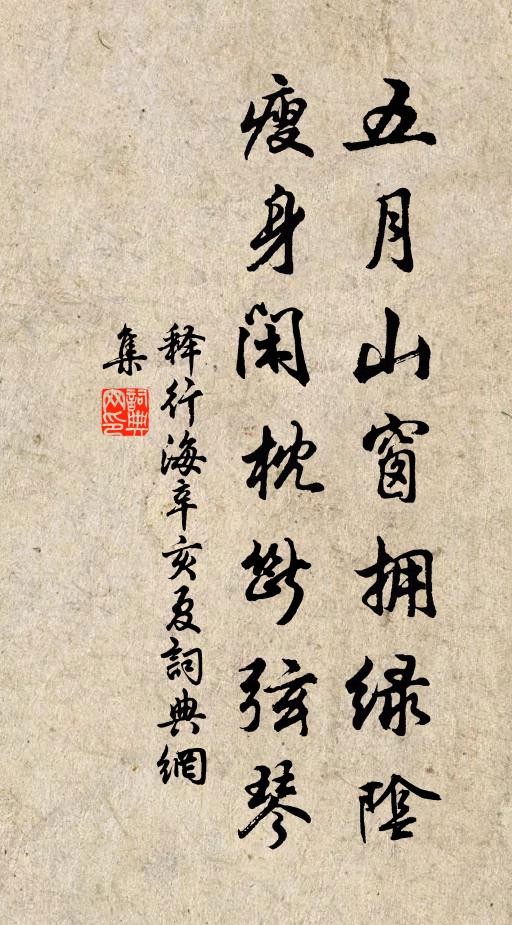 五月山窗拥绿阴
瘦身闲枕断弦琴
释行海辛亥夏詞典網
集
詞典网印